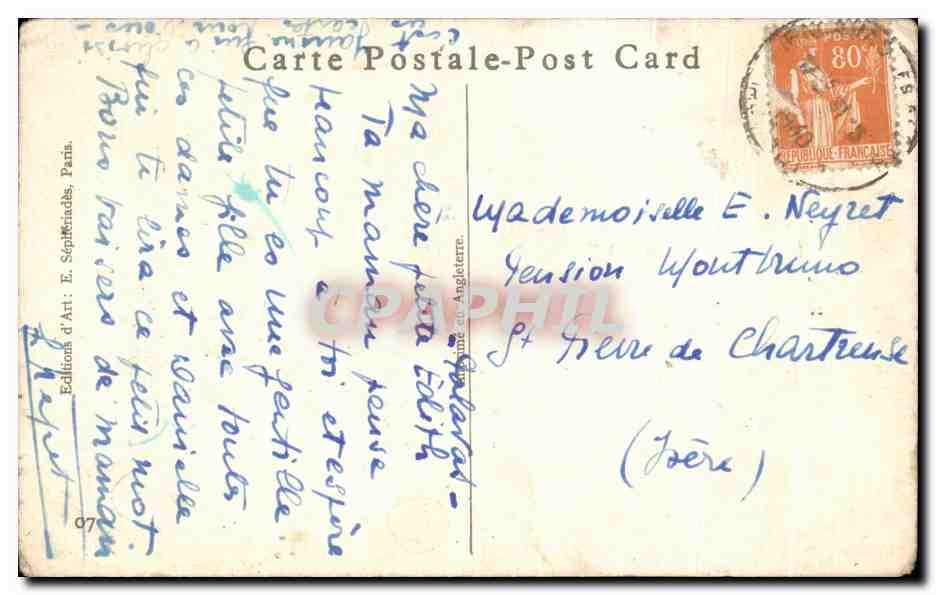 Carte Postale-Post Card
80c
RÉPUBLIQUE-FRANÇAISE
- Palavas -
Ma chère petite Edith
Ta maman pense
beaucoup à toi et espère
que tu es une gentille
petite fille avec toutes
ces dames et Danielle
qui te lira ce petit mot
Bons baisers de maman
Mademoiselle E. Neyret
Pension Montbruno
St Pierre de Chartreuse
(Isère)
Editions d'Art: E. Séphériadès, Paris.
Imprimé en Angleterre.
07
CPAPHIL